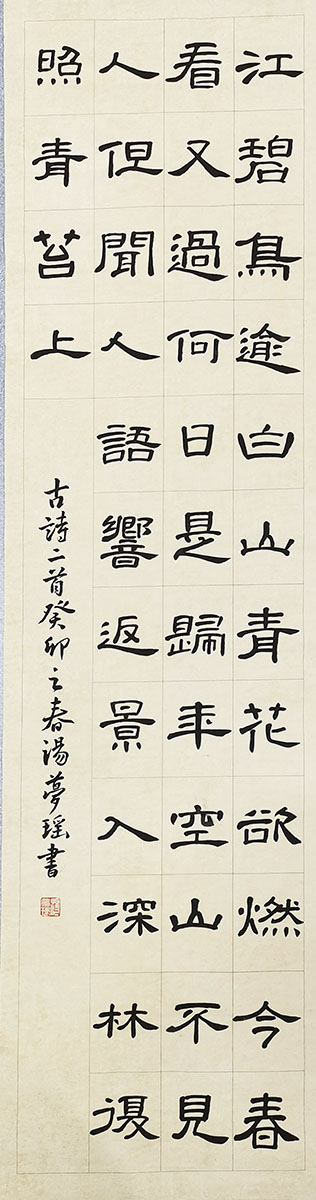 江碧鳥逾白山青花欲燃今春
看又過何日是歸年空山不見
人但聞人語響返景入深林復
照青苔上
古詩二首癸卯之春湯夢瑶書